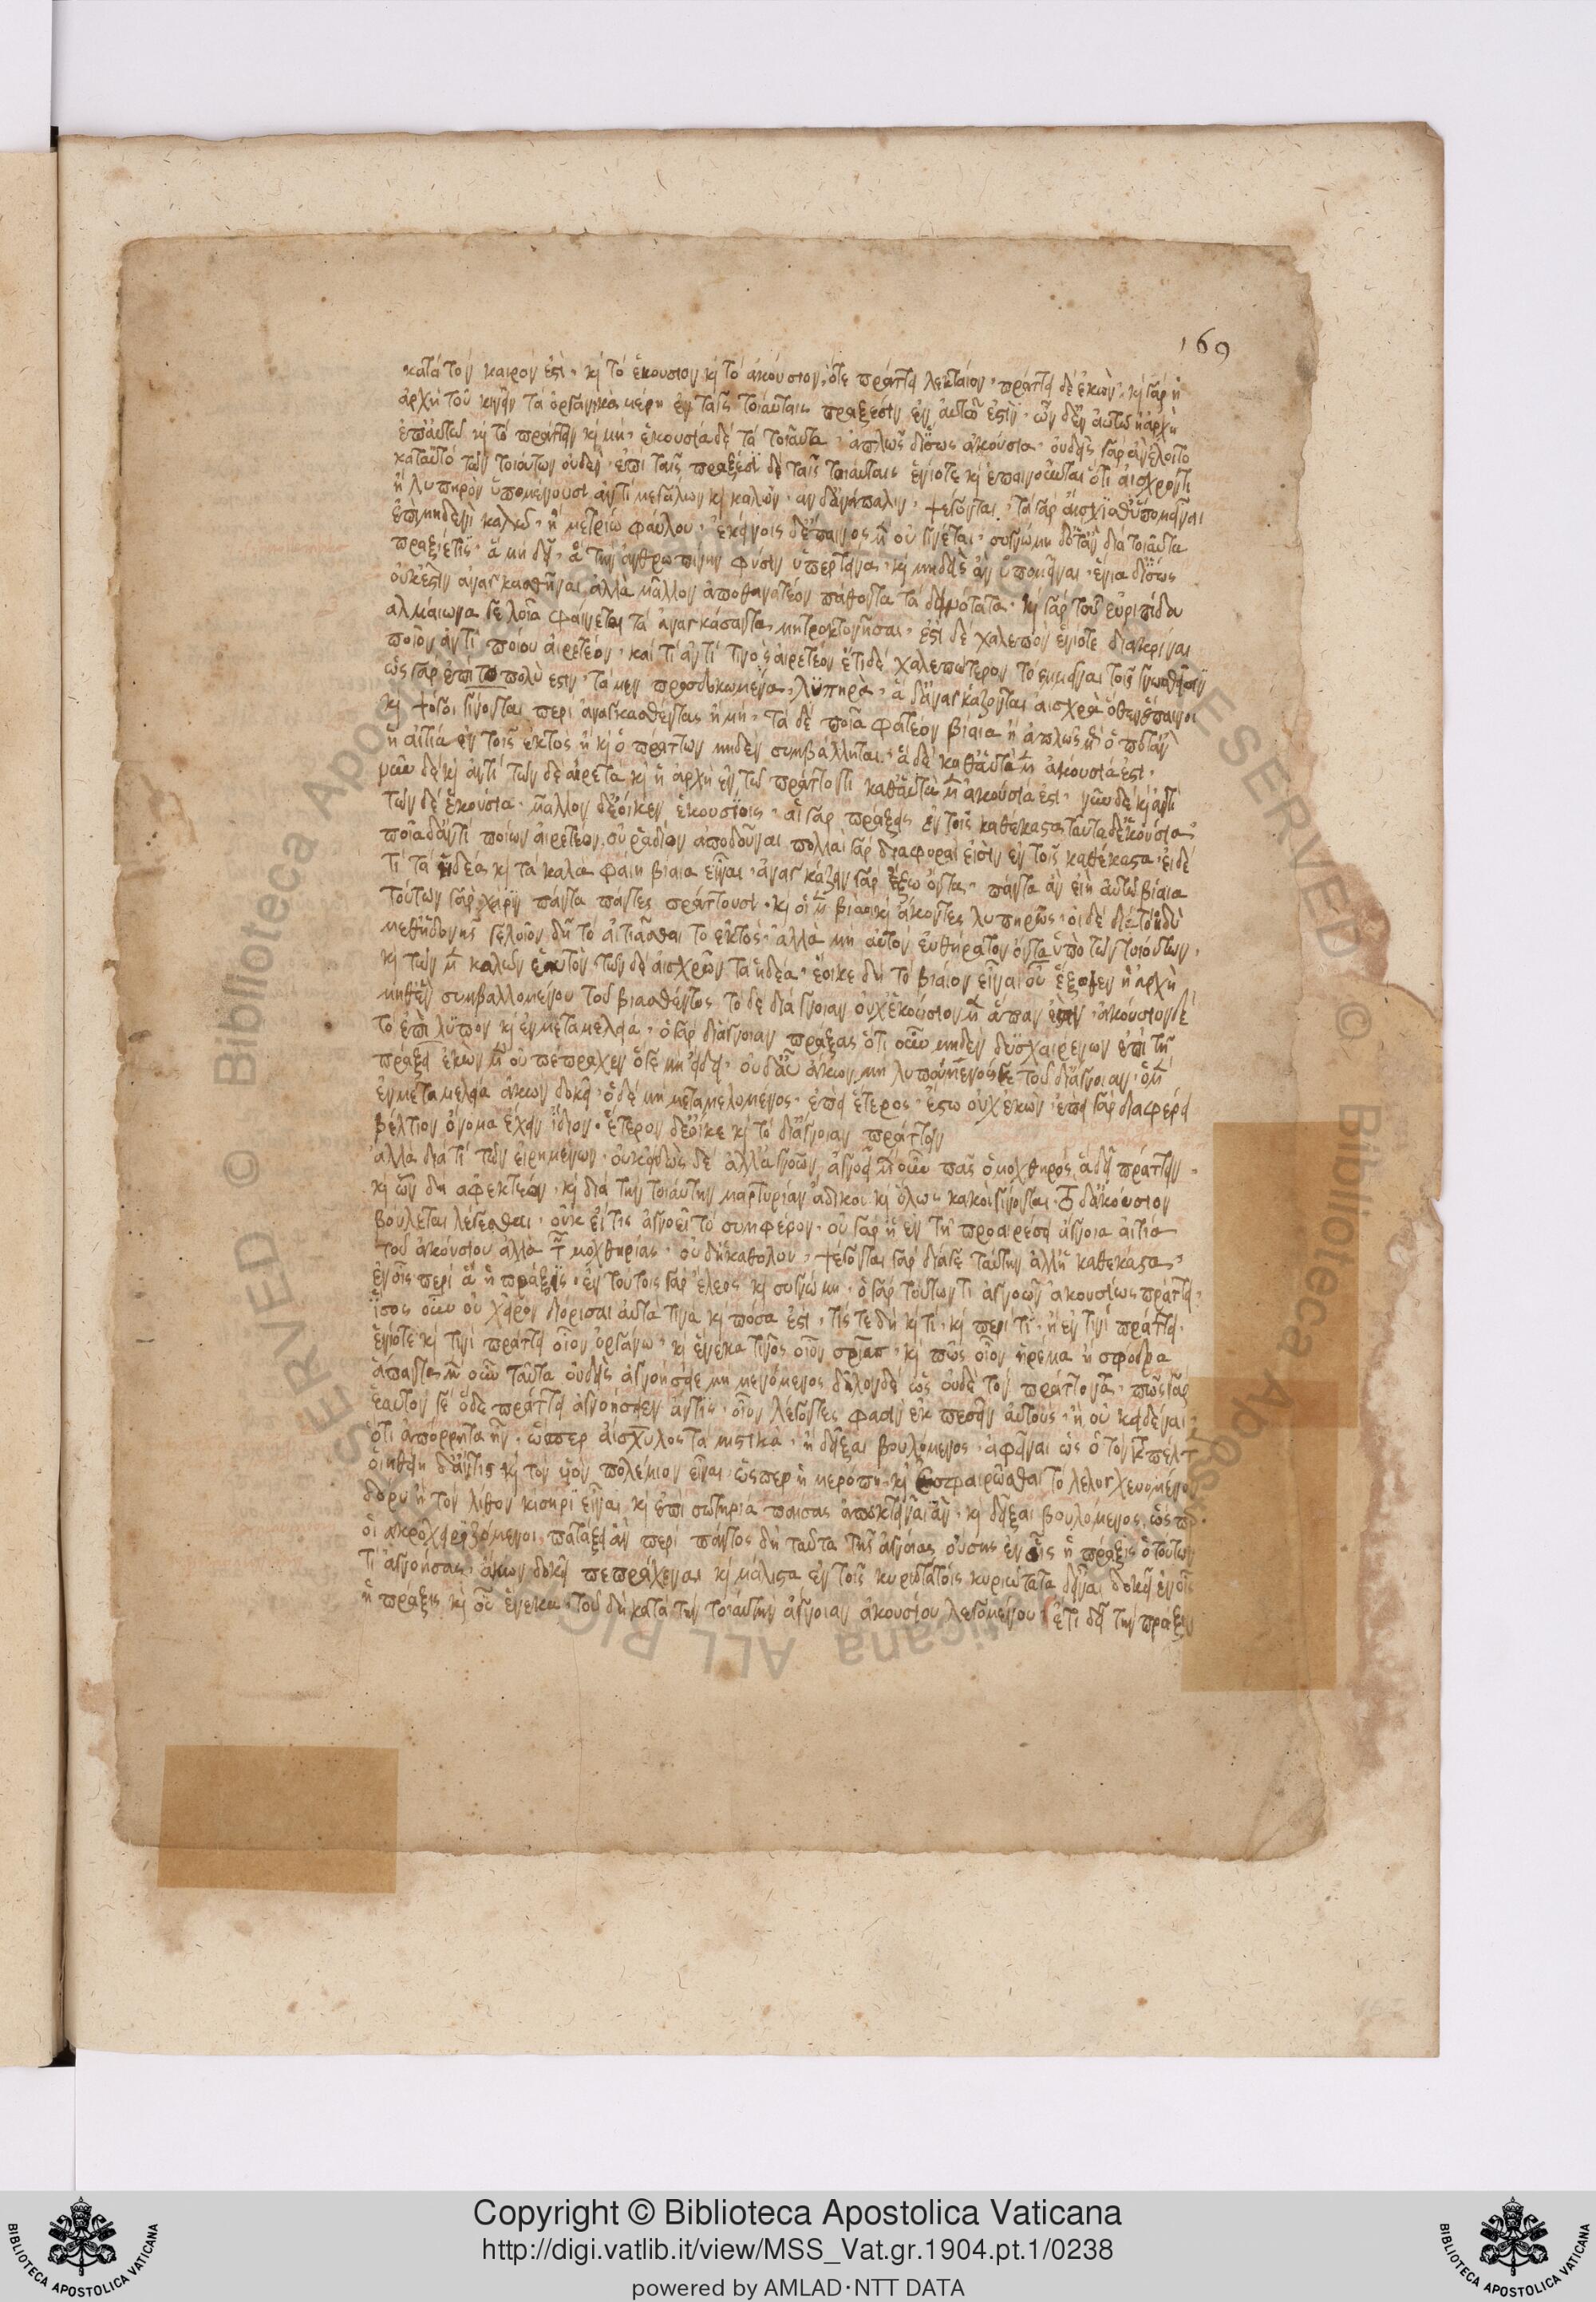 169
κατὰ τὸν καιρόν ἐστι· κὶ τὸ ἑκούσιον κὶ τὸ ἀκούσιον, ὅτε πράττει λεκταίον· πράττει δὲ ἑκὼν· κὶ γὰρ ἡ
ἀρχὴ τοῦ κινεῖν τὰ ὀργανικὰ μέρη ἐν ταῖς τοιαύταις πράξεσιν ἐν αυτῶ ἐστὶν· ὧν δ' ἐν αὐτῶ ἡ ἀρχὴ
ἐπ' αὐτῶ κὶ τὸ πράττειν κὶ μὴ· ἑκούσια δὲ τὰ τοιαῦτα· ἁπλῶς δ' ἴσως ἀκούσια· οὐδεὶς γὰρ ἂν ἕλοιτο
καταὐτὸ τῶν τοιούτων οὐδεν· ἐπὶ ταῖς πράξεσι δὲ ταῖς τοιαύταις ἐνίοτε κὶ ἐπαινοῦνται ὅτι αἰσχρόν τι
ἢ λυπηρὸν ὑπομένουσι ἀντὶ μεγάλων κὶ καλῶν· αν δ' ἀνάπαλιν, ψέγονται· τὰ γὰρ αἴσχισθ' ὑπομεῖναι
ἐπὶ μηδενὶ καλῶ· ἢ μετρίω φαύλου· ἐκείνοις δ' ἔπαινος μὲν οὐ γίνεται· συγνώμη δ' ὅταν διὰ τοιαῦτα
πράξη τις· ἃ μὴ δεῖ· ἃ τὴν ἀνθρωπίνην φύσιν ὑπερτείνει· κὶ μηδεὶς ἂν ὑπομεῖναι· ἔνια δ' ἴσως
οὐκ ἔστιν ἀναγκασθῆναι ἀλλὰ μᾶλλον ἀποθανατέον παθόντα τὰ δεινότατα· κὶ γὰρ τοῦ εὐριπίδου
αλμαίωνα γελοῖα φαίνεται τὰ ἀναγκάσαντα μητροκτονῆσαι· ἔστι δὲ χαλεπὸν ἐνίοτε διακρίναι
ποῖον ἀντὶ ποίου αἱρετέον· καὶ τί ἀντὶ τίνος αἱρετέον ἔτι δὲ χαλεπώτερον τὸ ἐμμεῖναι τοῖς γνωσθεῖσιν
ὡς γὰρ ἐπὶ το πολὺ εστιν· τὰ μὲν προσδοκωμένα, λϋπηρὰ· ἃ δ' ἀναγκάζονται αἰσχρὰ ὅθεν ἔπαινοι
κὶ ψόγοι γίνονται περὶ ἀναγκασθέντας ἢ μὴ· τὰ δὲ ποῖα φατέον βίαια ἢ ἁπλῶς μὲν ὁπόταν
ἡ αἰτία ἐν τοῖς ἐκτὸς ἦ κὶ ὁ πράττων μηδὲν συμβάλληται· ἃ δὲ καθ' αὑτὰ μὲν ἀκούσιά ἐστι·
νῦν δὲ κὶ ἀντὶ τῶν δὲ αἱρετα κὶ ἡ ἀρχὴ ἐν τῶ πράττοντι καθ' αὑτὰ μὲν ἀκούσιά ἐστι· νῦν δὲ κὶ ἀντὶ
τῶν δὲ ἑκούσια· μᾶλλον δ' ἔοικεν ἑκουσίοις· αἱ γὰρ πράξεις ἐν τοῖς καθέκαστα ταῦτα δ' ἑκούσια
ποῖα δ' ἀντὶ ποίων αἱρετέον, οὐ ῥάδιον ἀποδοῦναι πολλαὶ γὰρ διαφοραὶ εἰσὶν ἐν τοῖς καθέκαστα· εἰ δέ
τι τὰ ἡδέα κὶ τὰ καλὰ φαίη βίαια εἶναι· ἀναγκάζειν γὰρ ἔξω ὄντα· πάντα ἂν εἴη αὐτῶ βίαια
τούτων γὰρ χάριν πάντα πάντες πράττουσι· κὶ οἱ μὲν βία κὶ ἄκοντες λυπηρῶς· οἱ δὲ διὰ τὸ ἡδὺ
μεθ' ἡδονῆς γελοῖον δὴ τὸ αἰτιᾶσθαι τὸ ἐκτὸς· ἀλλὰ μὴ αὐτὸν ἐυθήρατον ὄντα ὑπὸ τῶν τοιούτων,
κὶ τῶν μὲν καλῶν ἑαυτὸν, τῶν δὲ αἰσχρῶν τὰ ἡδέα· ἔοικε δὴ τὸ βίαιον εἶναι οὗ ἔξωθεν ἡ ἀρχὴ
μηθὲν συμβαλλομένου τοῦ βιασθέντος τὸ δε διὰ γνοιαν οὐχ ἑκούσιον μὲν ἅπαν ἐστιν· ἀκούσιον δὲ
τὸ ἐπὶ λϋπον κὶ ἐν μεταμελεία· ὁ γὰρ δι' ἄγνοιαν πράξας ὁτι οὖν μηδὲν δυσχαιρένων ἐπὶ τῆ
πράξει ἑκὼν μὲν οὐ πέπραχεν ὅγε μὴ ἤδει· οὐδ' αὖ ἄκων, μὴ λυπούμενός γε τοῦ δι' ἄγνοιαν· ὁ μὲν
ἐν μεταμελεία ἄκων δοκεῖ· ὁ δὲ μὴ μεταμελόμενος· ἐπεὶ ἕτερος· ἔστω οὐχ ἑκὼν· ἐπεὶ γὰρ διαφέρει
βέλτιον ὄνομα ἔχειν ἴδιον· ἕτερον δ' ἔοικε κὶ τὸ δι' ἄγνοιαν πράττειν
ἀλλὰ διὰ τί τῶν εἰρημένων· οὐκ εἰδὼς δὲ ἀλλ' ἀγνοῶν, ἀγνοεῖ μὲν οὖν πᾶς ὁ μοχθηρός, ἃ δεῖ πράττειν·
κὶ ὧν δὴ αφεκτέον· κὶ διὰ τὴν τοιαύτην μαρτυρίαν ἄδικοι κὶ ὅλως κακοὶ γίνονται· τὸ δ' ἀκούσιον
βούλεται λέγεσθαι· οὐκ εἴ τις ἀγνοεῖ τὸ συμφέρον· οὐ γὰρ ἡ ἐν τῆ προαιρέσει ἄγνοια αἰτία
τοῦ ἀκούσίου ἀλλὰ τῆς μοχθηρίας· οὐ δ' ἡ καθόλου, ψέγονται γὰρ διά γε ταύτην ἀλλ' ἡ καθέκαστα,
ἐν οἷς περὶ ἃ ἡ πρᾶξις· ἐν τούτοις γὰρ ἔλεος κὶ συγνώμη· ὁ γὰρ τούτων τι ἀγνοῶν ἀκουσίως πράττει·
ἴσως οὖν οὐ χεῖρον διόρισαι αὐτὰ τίνα κὶ πόσα ἐστὶ· τίς τε δὴ κὶ τί· κὶ περὶ τὶ· ἢ ἐν τίνι πράττει·
ἐνίοτε κὶ τίνι πράττει οἷον ὀργάνω· κὶ ἕνεκα τίνος οἷον σρίαπ· κὶ πῶς οἷον ἠρέμα ἢ σφόδρα
ἅπαντα μὲν οὖν ταῦτα οὐδεὶς ἀγνοήσειε μὴ μενόμενος δῆλον δὲ ὡς οὐδὲ τὸν πράττοντα· πῶς γὰρ
ἑαυτόν γε ὃ δὲ πράττει ἀγνοήσειεν ἄν τις· οἷον λέγοντες φασὶν ἐκπεσεῖν αὐτοὺς· ἢ οὐκ εἰδέναι·
ὅτι ἀπόρρητα ἦν· ὥσπερ ἀίσχυλος τὰ μιστικὰ· ἢ δεῖξαι βουλόμενος· ἀφεῖναι ὡς ὁ τὸν καταπέλτ
οἰηθείη δ' ἄν τις κὶ τὸν υἱὸν πολέμιον εἶναι· ὥσπερ ἡ μερόπη· κὶ ἐσφαιρῶσθαι τὸ λελογχευομένον
δόρυ ἢ τὸν λίθον κίσηριν εἶναι κὶ ἐπὶ σωτηρία παισας ἀποκτείναι ἂν· κὶ δεῖξαι βουλόμενος ὥσπρ·
οἱ ακροχειριζόμενοι, πατάξει ἂν περὶ πάντος δὴ ταῦτα τῆς ἀγνοίας οὔσης ἐν οἷς ἡ πρᾶξις ὁ τούτων
τι ἀγνοήσας· ἄκων δοκεῖ πεπράχεναι κὶ μάλιστα ἐν τοῖς κυριωτάτοις κυριώτατα δ' εἶναι δοκεῖ ἐν οἷς
ἡ πρᾶξις κὶ οὗ ἕνεκα· τοῦ δὴ κατὰ τὴν τοιαύτην ἄγνοιαν ἀκουσίου λεγομένου ἔτι δεῖ τὴν πρᾶξιν
Copyright © Biblioteca Apostolica Vaticana
http://digi.vatlib.it/view/MSS_Vat.gr.1904.pt.1/0238
powered by AMLAD·NTT DATA
BIBLIOTECA APOSTOLICA VATICANA
BIBLIOTECA APOSTOLICA VATICANA